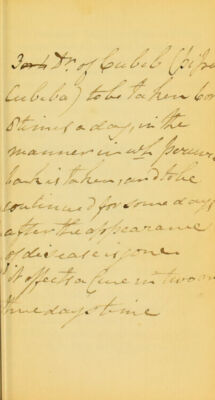 3 or 4 Dr. of Cubeb (piper
Cubeba) to be taken 6 or
8 times a day, in the
manner in wh peruv.
bark is taken, and to be
continued for some days
after the appearance
of disease is gone
it effects a Cure in two or
three days time